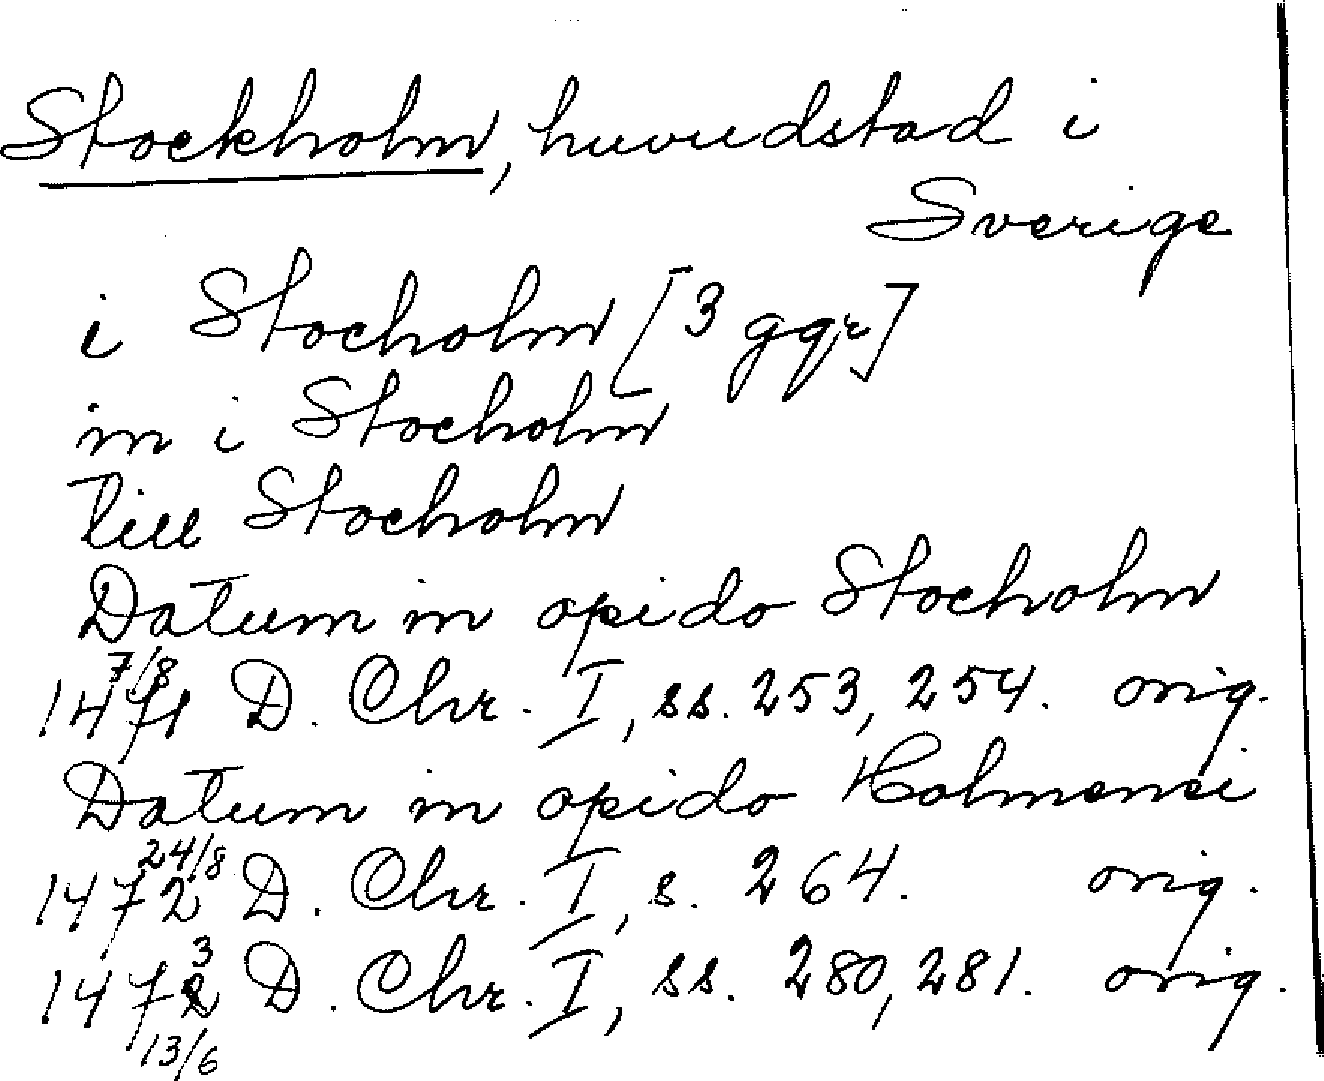 Stockholm, huvudstad i
Sverige
i Stocholm [3 ggr]
in i Stocholm
till Stocholm
Datum in opido Stocholm
7/8
1471 D. Chr. I, ss. 253, 254. orig.
Datum in opido Holmensi
24/8
1472 D. Chr. I, s. 264. orig.
3
1472 D. Chr. I, ss. 280, 281. orig.
13/6